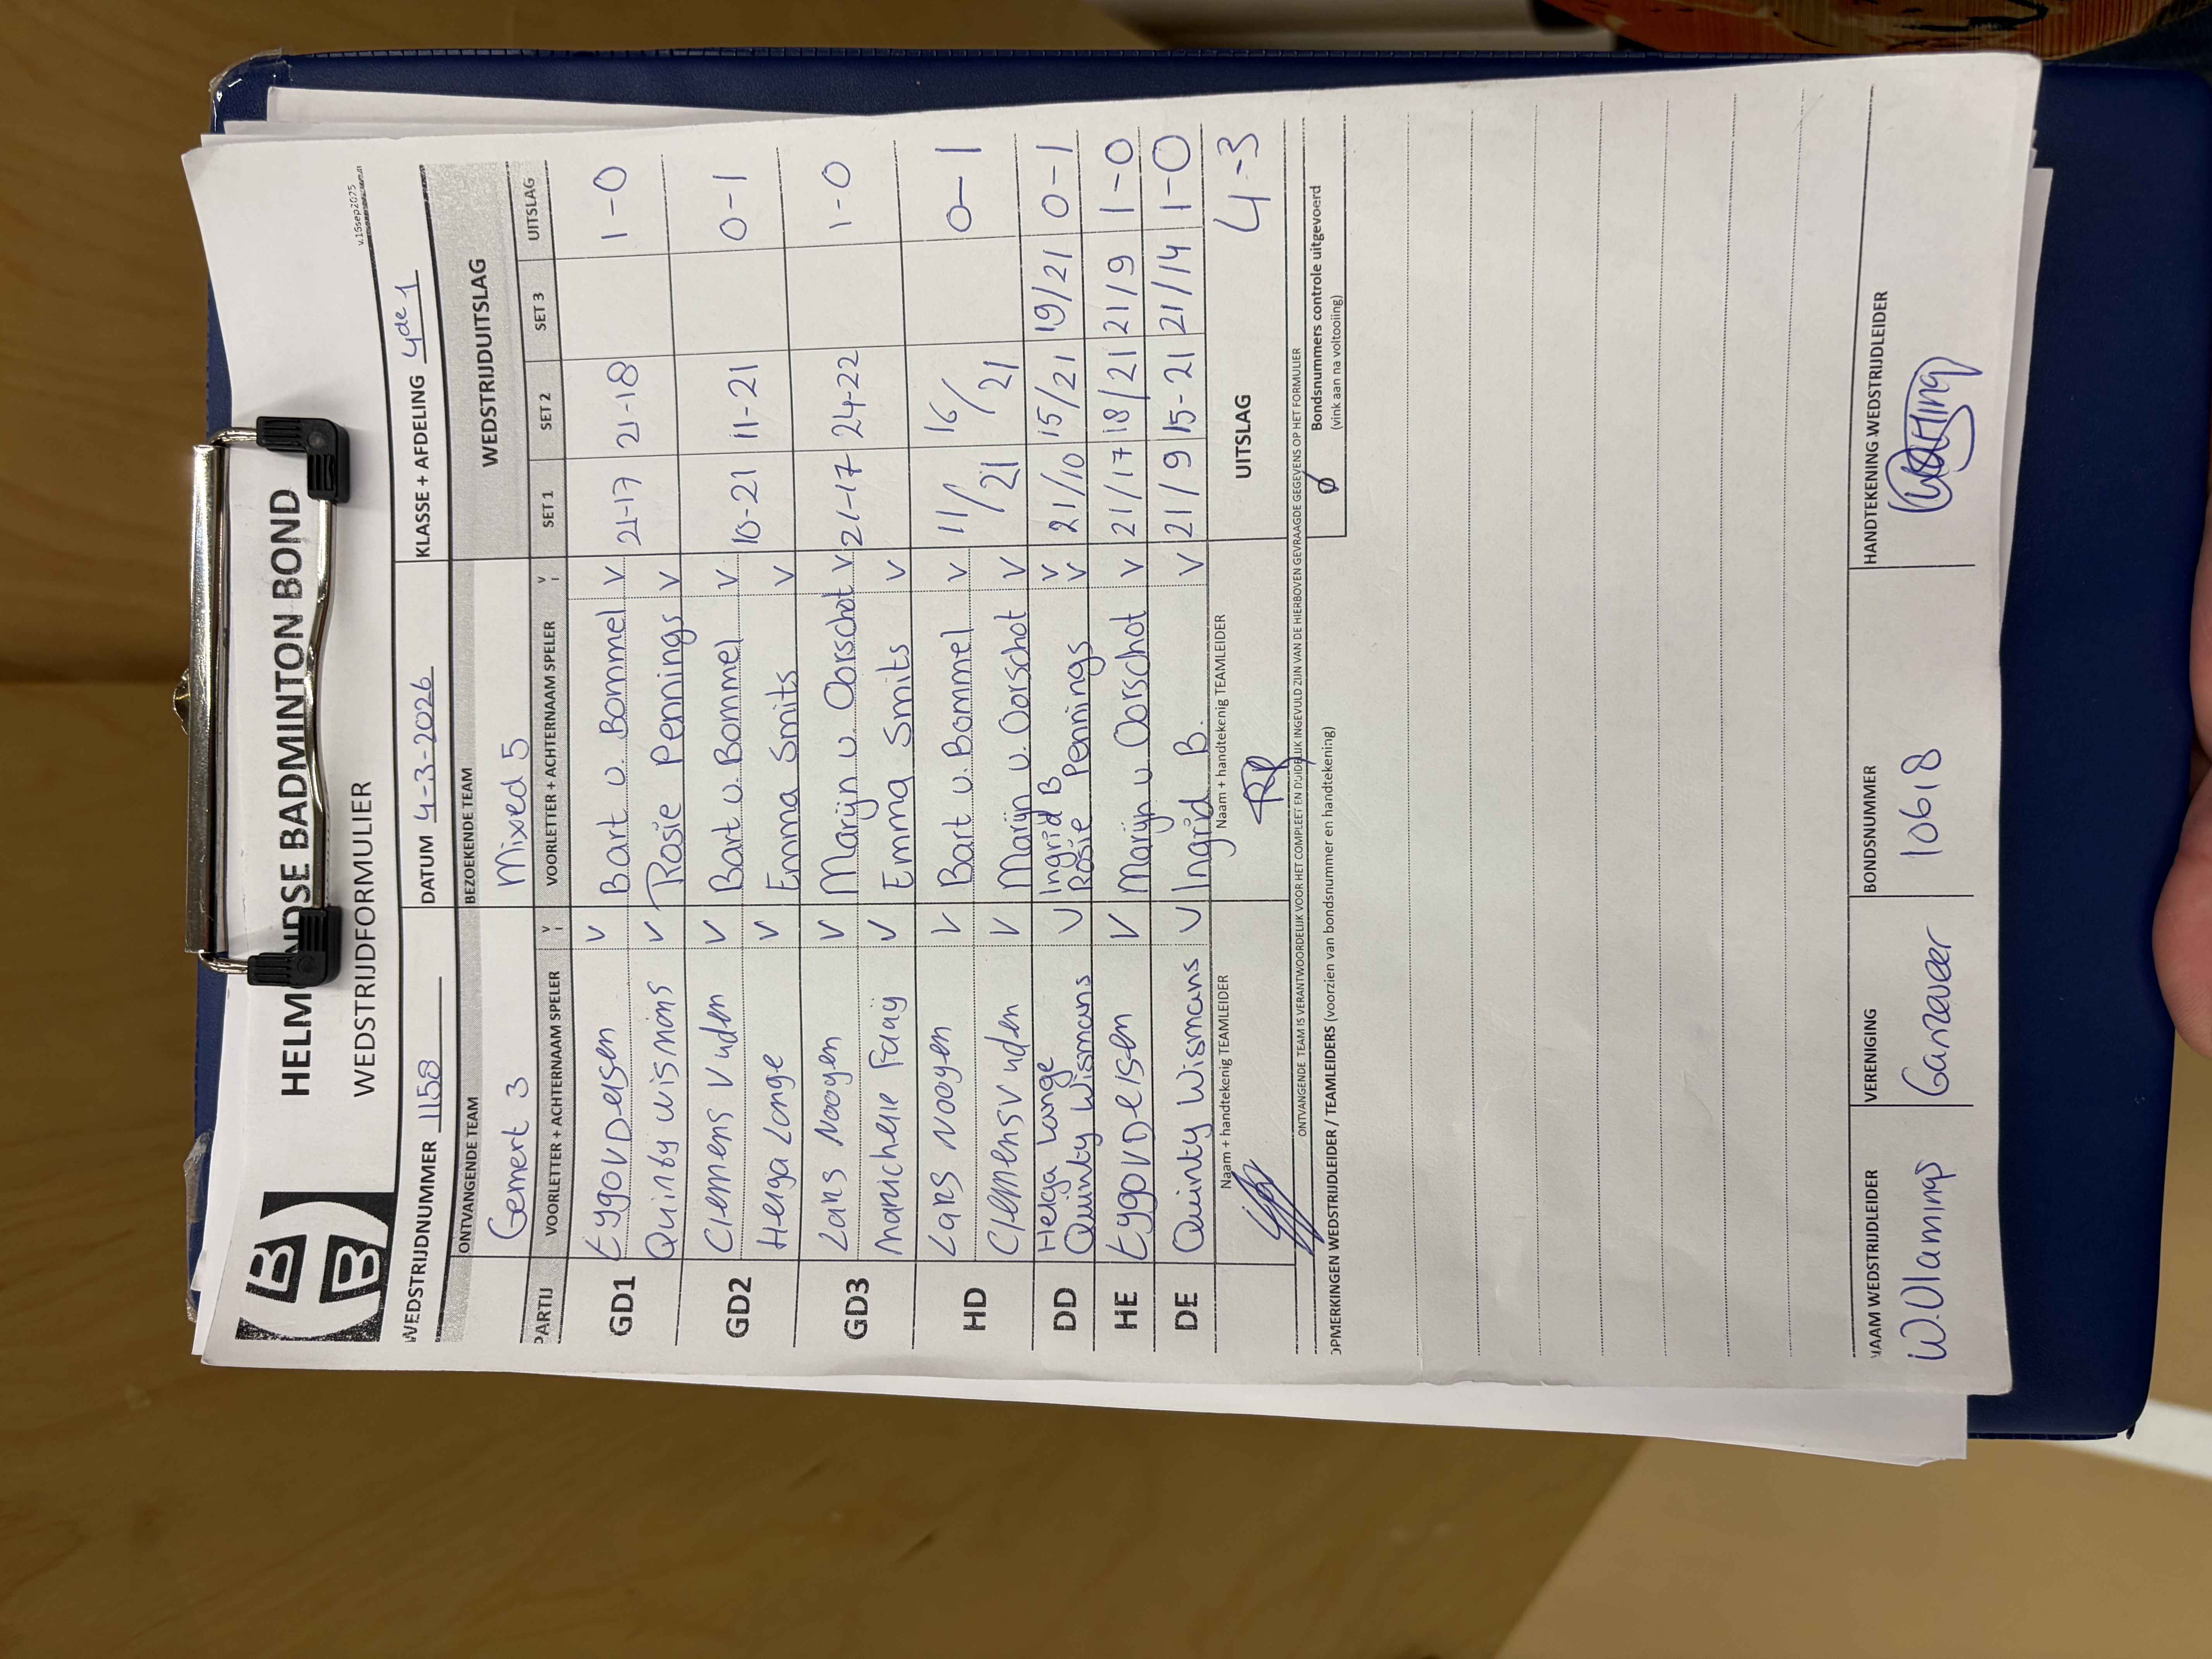 HELM NDSE BADMINTON BOND
WEDSTRIJDFORMULIER
v.15sep2025
WEDSTRIJDNUMMER 1158 DATUM 4-3-2026 KLASSE + AFDELING 4de 1
ONTVANGENDE TEAM BEZOEKENDE TEAM WEDSTRIJDUITSLAG
Gemert 3 Mixed 5
PARTIJ VOORLETTER + ACHTERNAAM SPELER V VOORLETTER + ACHTERNAAM SPELER V SET 1 SET 2 SET 3 UITSLAG
GD1 Eggo v Deisen V Bart v. Bommel V 21-17 21-18 1-0
Quinty Wismans V Rosie Pennings V
GD2 Clemens V uden V Bart v. Bommel V 10-21 11-21 0-1
Helga Lange V Emma Smits V
GD3 Lars Nooyen V Marijn v. Oorschot V 21-17 24-22 1-0
V Emma Smits V
HD Lars Nooyen V Bart v. Bommel V 11/21 16/21 0-1
Clemens V uden V Marijn v. Oorschot V
DD Helga Lange Ingrid B V 21/10 15/21 19/21 0-1
Quinty Wismans V Rosie Pennings V
HE Eggo v Deisen V Marijn v Oorschot V 21/17 18/21 21/9 1-0
DE Quinty Wismans V Ingrid B. V 21/9 15-21 21/14 1-0
Naam + handtekenig TEAMLEIDER Naam + handtekenig TEAMLEIDER UITSLAG 4-3
RP
ONTVANGENDE TEAM IS VERANTWOORDELIJK VOOR HET COMPLEET EN DUIDELIJK INGEVULD ZIJN VAN DE HIERBOVEN GEVRAAGDE GEGEVENS OP HET FORMULIER
OPMERKINGEN WEDSTRIJDLEIDER / TEAMLEIDERS (voorzien van bondsnummer en handtekening)
Bondsnummers controle uitgevoerd
(vink aan na voltooiing)
NAAM WEDSTRIJDLEIDER VERENIGING BONDSNUMMER HANDTEKENING WEDSTRIJDLEIDER
W. Vlamings Ganzeveer 10618